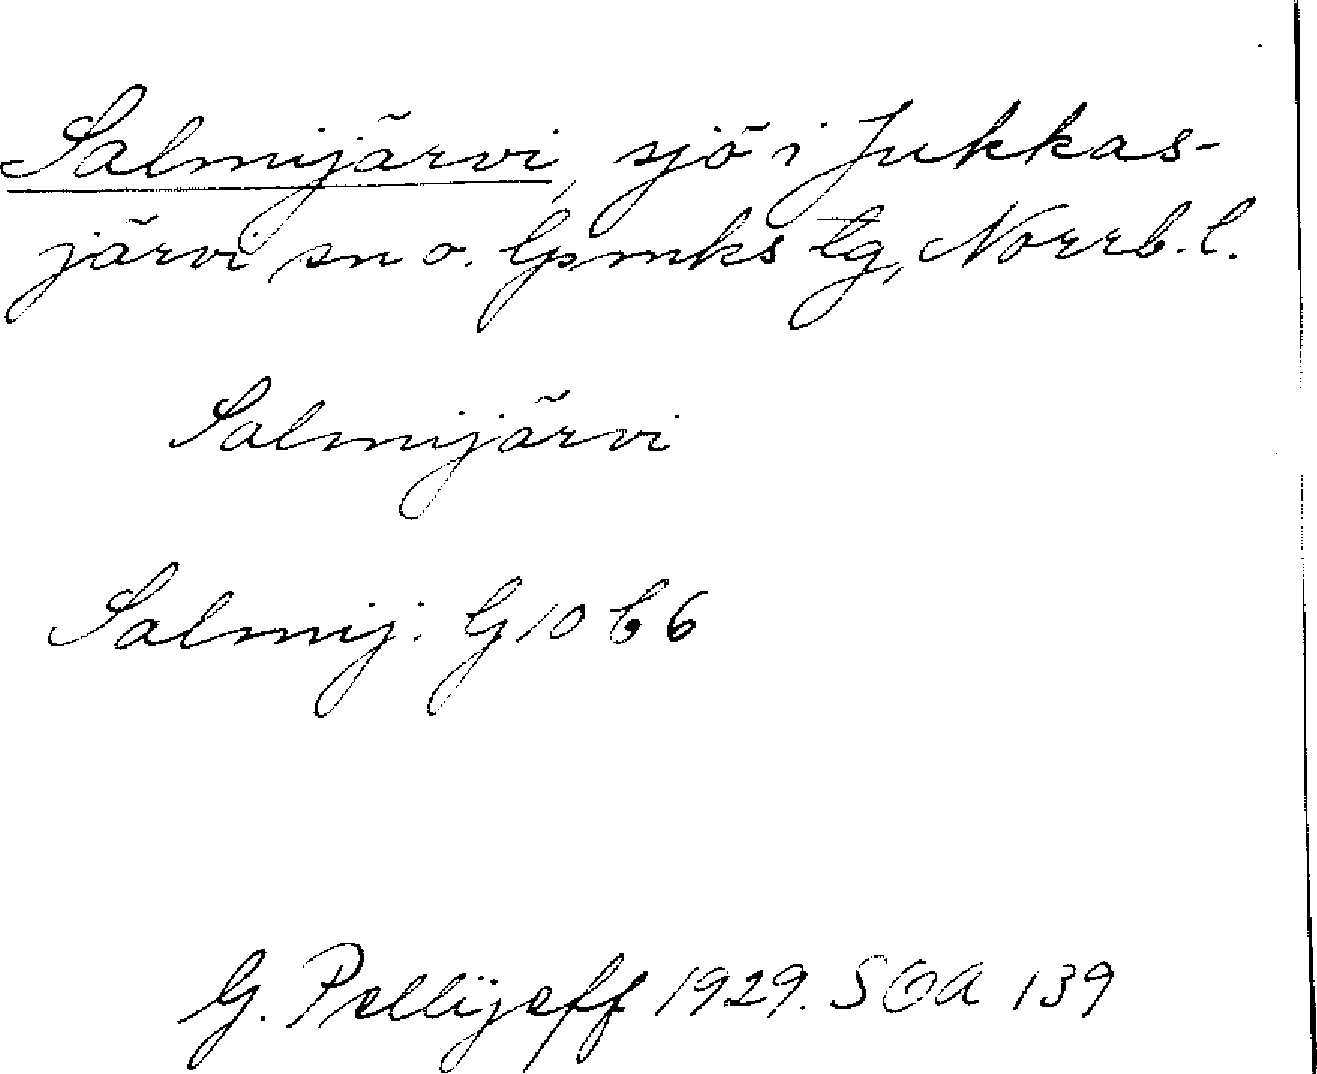 Salmijärvi, sjö i Jukkas-
järvi sn o. lpmks tg, Norrb. l.
Salmijärvi
Salmij. G 10 b 6
G. Pellijeff 1929. SOA 139